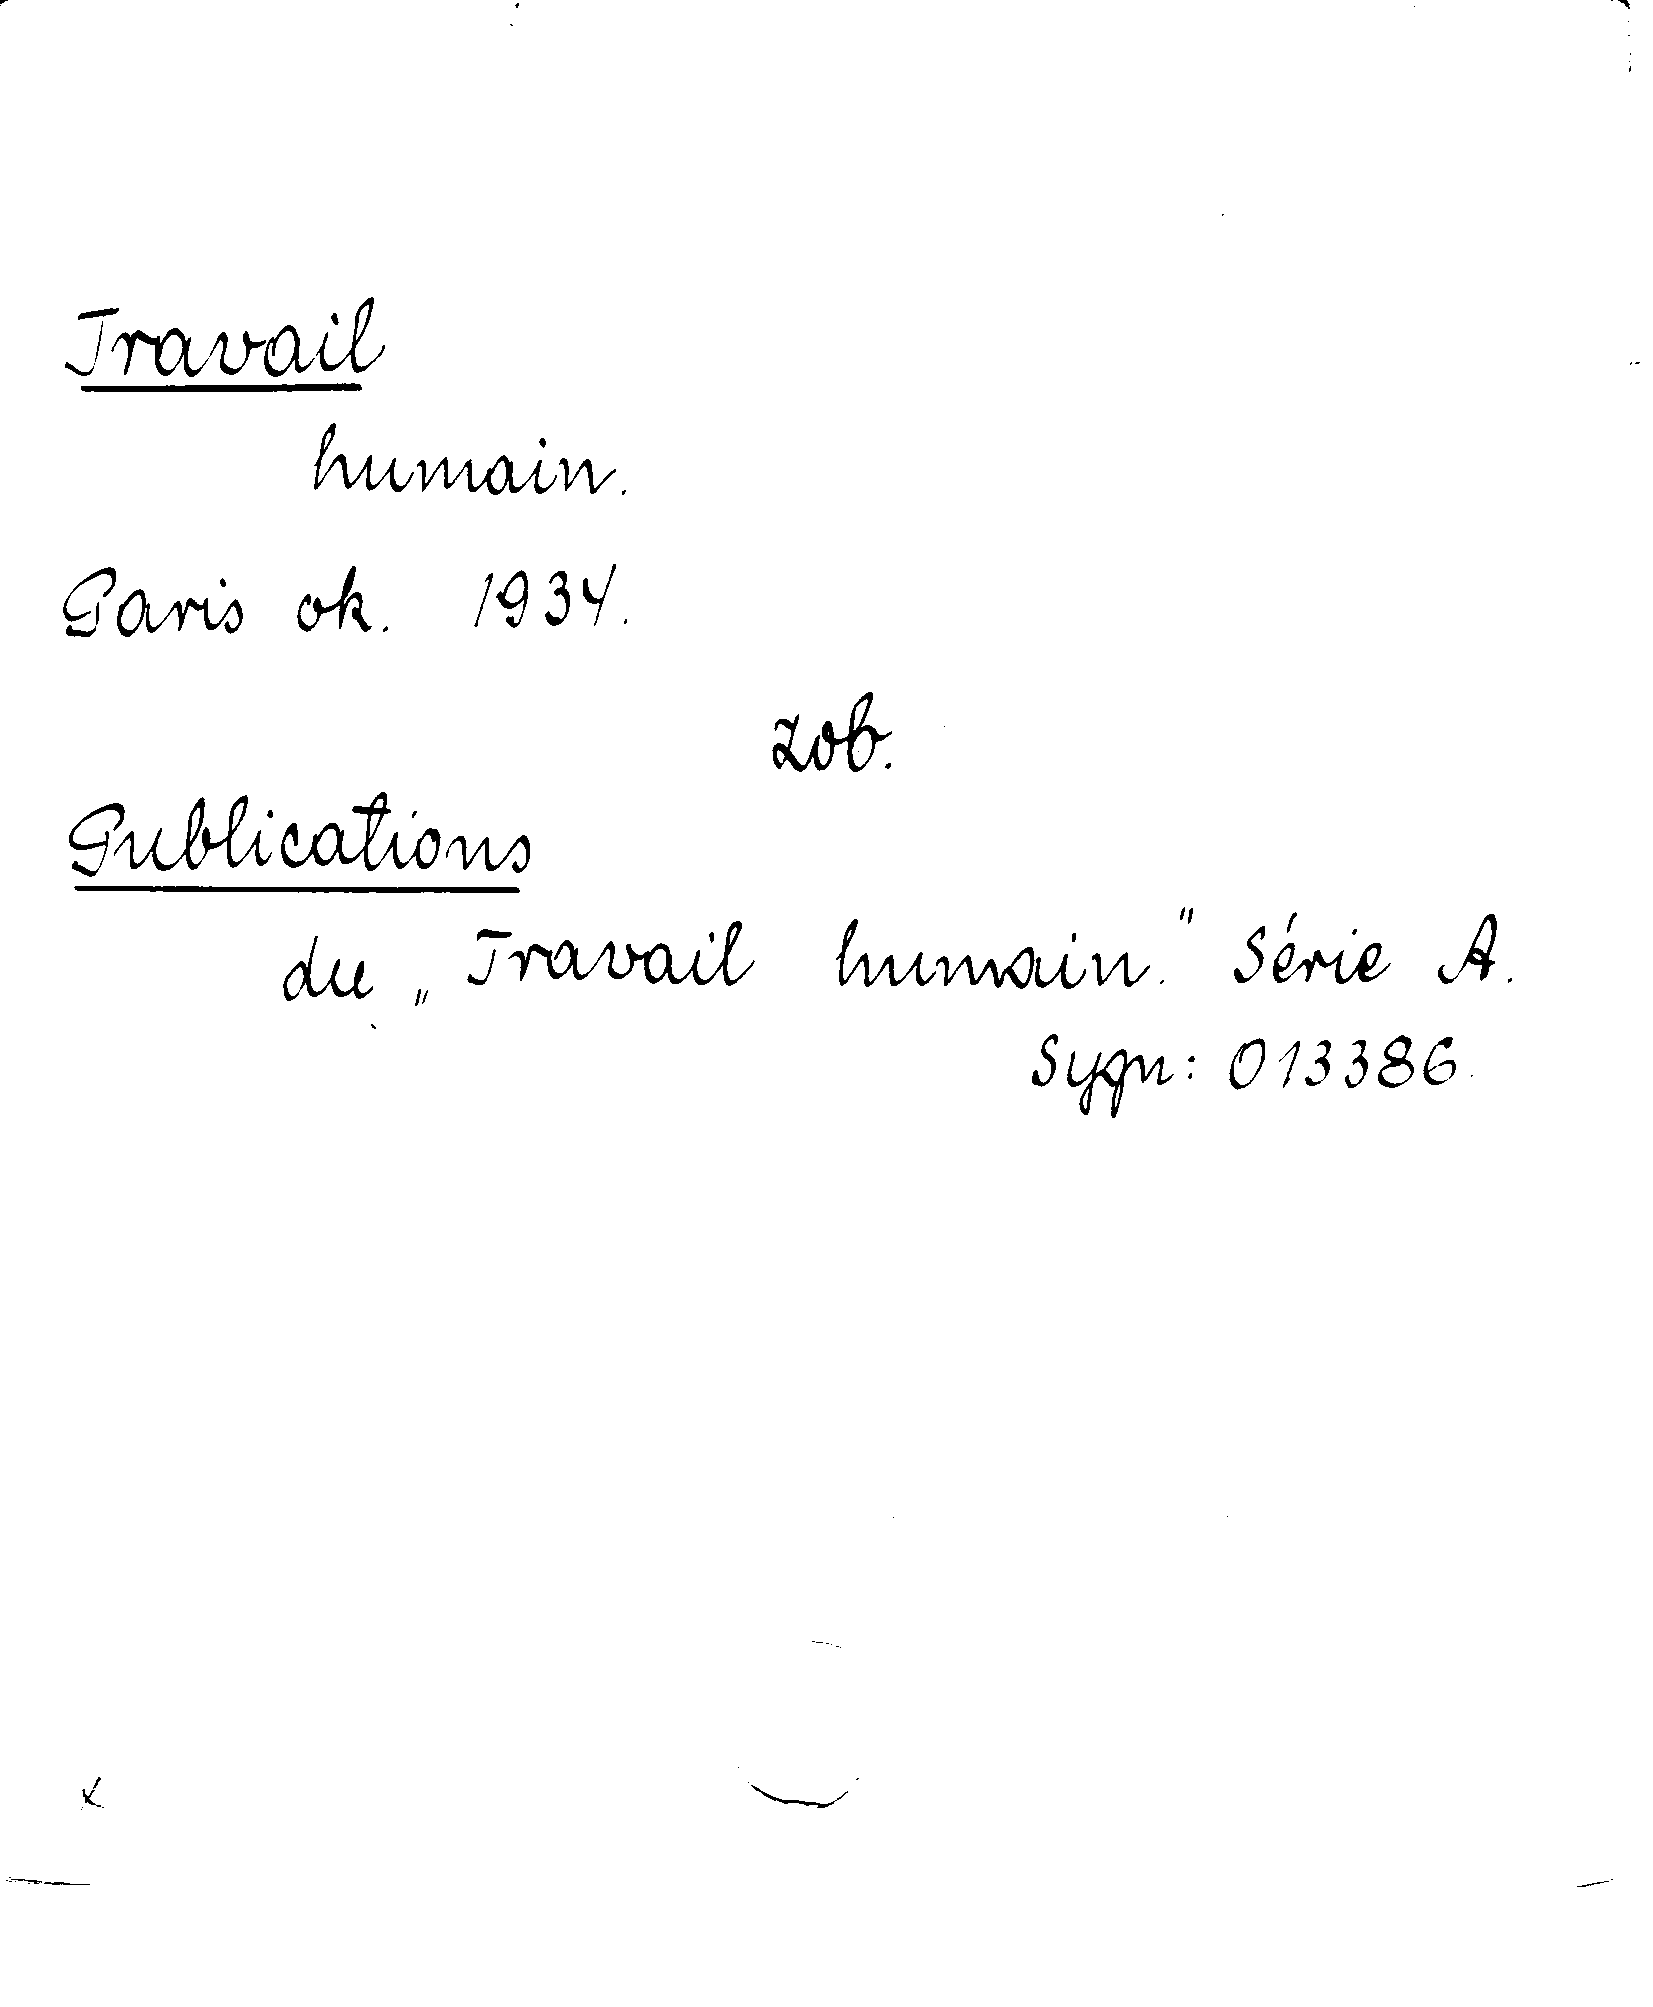 Travail
humain.
Paris ok. 1934.
zob.
Publications
du „Travail humain." Série A.
Sygn: 013386.
x